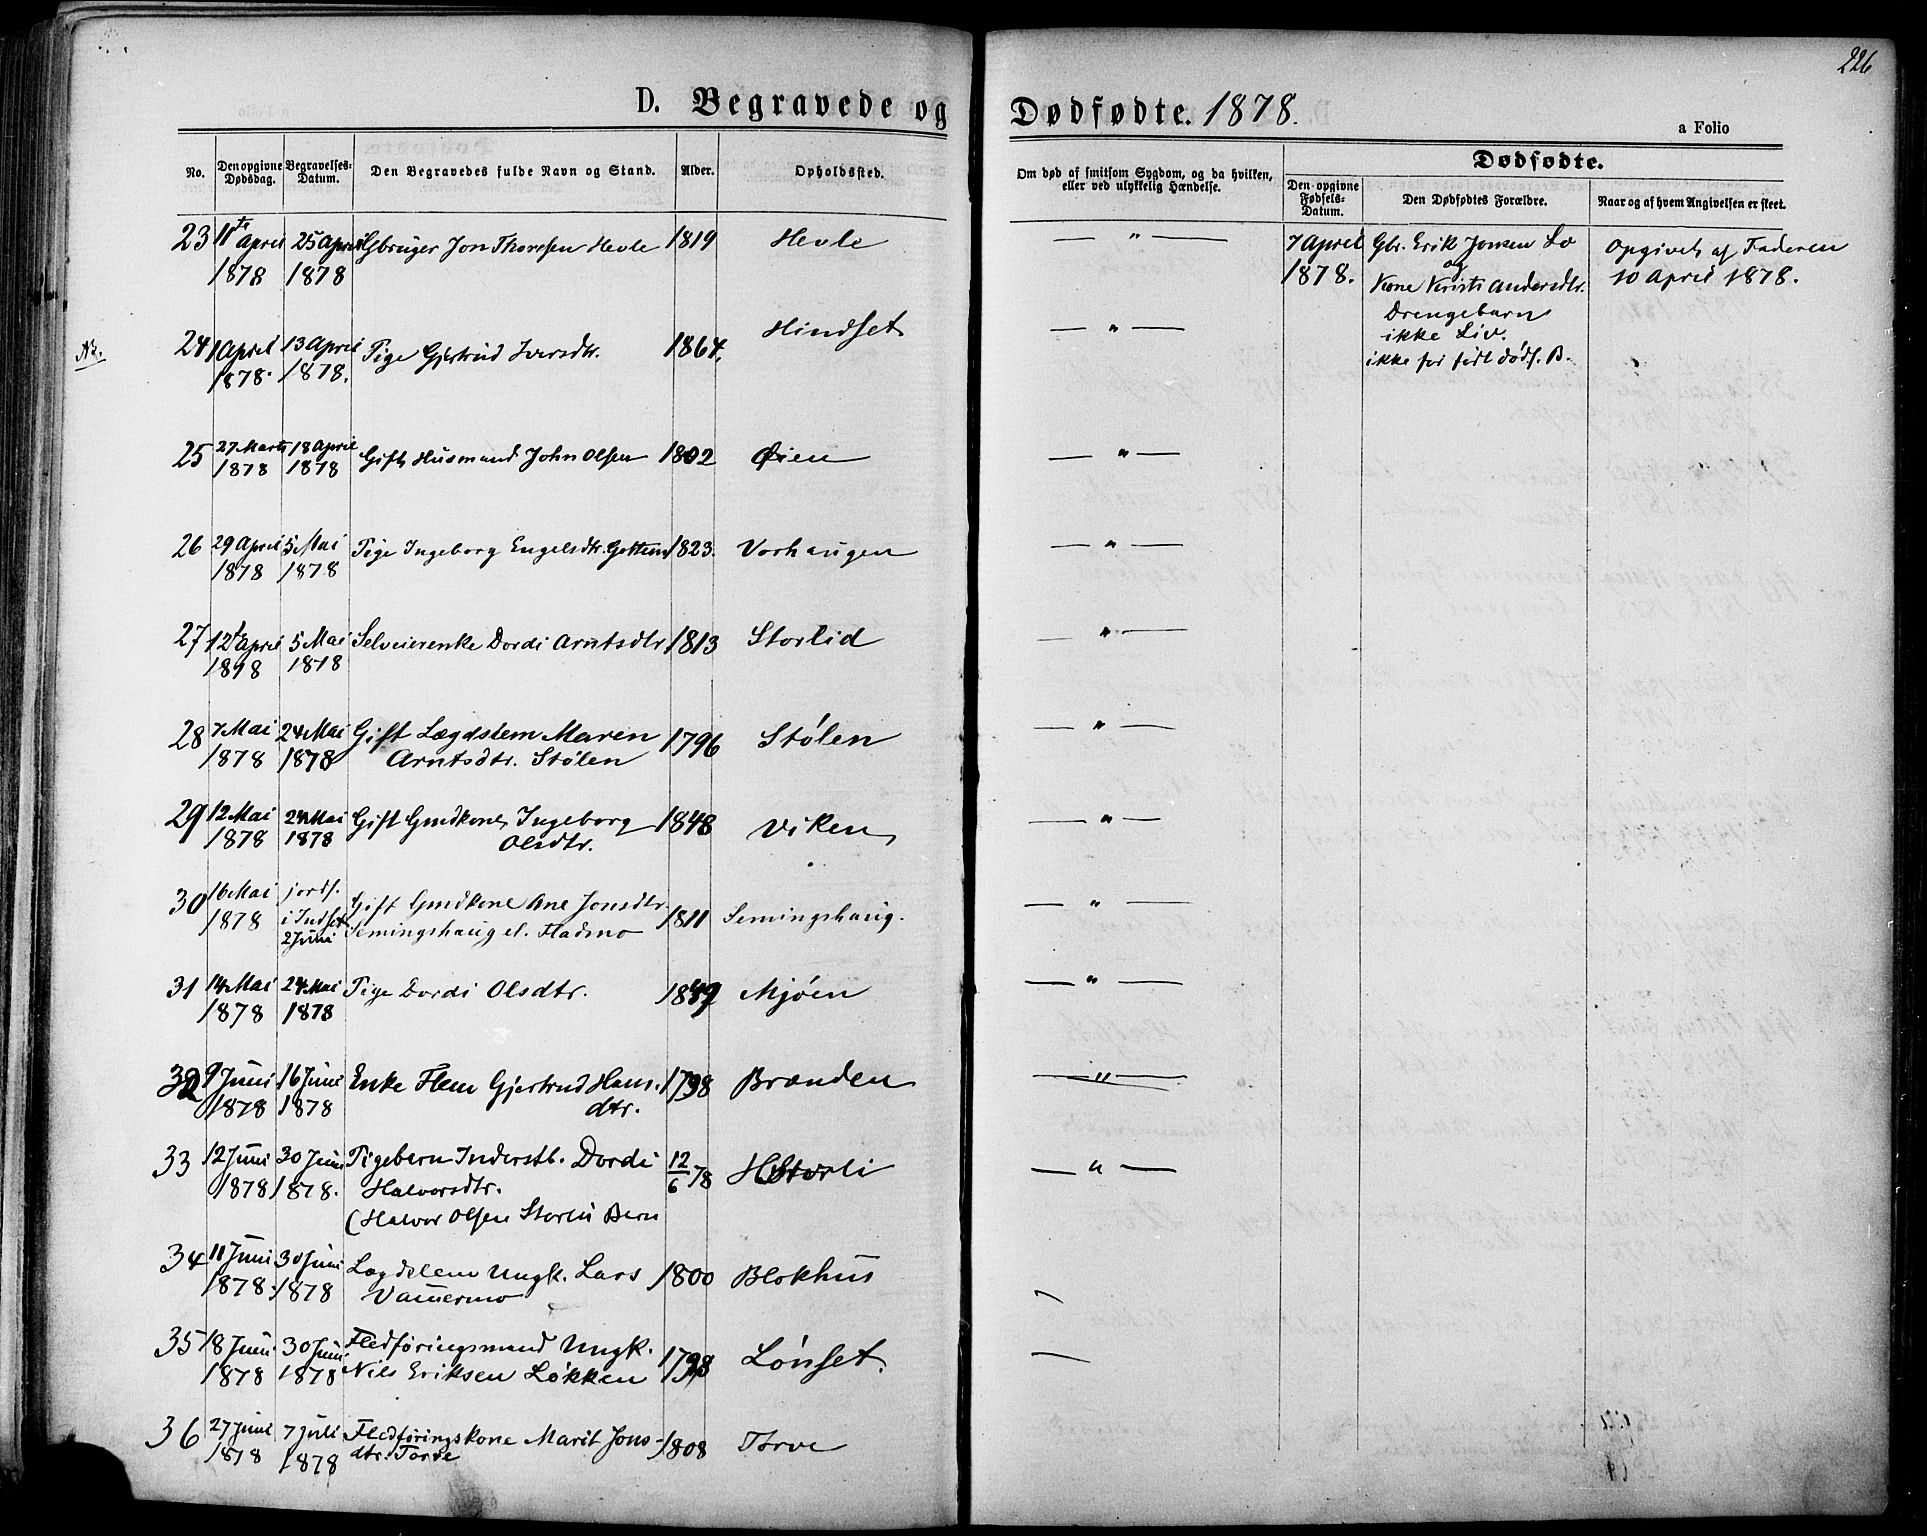 226
D. Begravede og Dødfødte. 1878.
a Folio
No.
Den opgivne Dødsdag.
Begravelses-Datum.
Den Begravedes fulde Navn og Stand.
Alder.
Opholdssted.
Om død af smitsom Sygdom, og da hvilken,
eller ved ulykkelig Hændelse.
Dødfødte.
Den opgivne Fødsels-Datum.
Den Dødfødtes Forældre.
Naar og af hvem Angivelsen er skeet.
23 11te April 25 April Gbruger Jon Thoresen Hevle 1819 Hevle — " —
1878 1878
7 April Gbr. Erik Jonsen Lo Opgivet af Faderen
1878. og 10 April 1878.
Kone Kirsti Andersdtr.
Drengebarn
ikke Liv.
ikke før født dødf. B.
Nb. 24 1 April 13 April Pige Gjertrud Iversdtr. 1864. Hindset — " —
1878. 1878.
25 27 Marts 18 April Gift Husmand John Olsen 1802 Øien — " —
1878 1878
26 29 April 5 Mai Pige Ingeborg Engelsdtr. 1823. Vorhaugen — " —
1878 1878
27 12te April 5 Mai Selveierenke Dordi Arntsdtr. 1813 Storlid — " —
1878 1878
28 7 Mai 24 Mai Gift Lægdslem Maren 1796 Stølen — " —
1878 1878 Arntsdtr. Stølen
29 12 Mai 24 Mai Gift Gmdkone Ingeborg 1848 Viken — " —
1878 1878 Olsdtr.
30 16 Mai jordf. Gift Gmdkone Ane Jonsdtr. 1811 Semingshaug. — " —
1878 i Indset Semingshaug el. Fladmo
2 Juni
31 14 Mai 24 Mai Pige Dordi Olsdtr. 1849 Mjøen — " —
1878 1878
32 9 Juni 16 Juni Enke Gjertrud Hans. 1798 Brænden — " —
1878 1878 dtr.
33 12 Juni 30 Juni Pigebarn Inderstb. Dordi 12/6 78 Storli — " —
1878 1878. Halvorsdtr.
(Halvor Olsen Storlis Barn
34 11 Juni 30 Juni Lægdslem Ungk. Lars 1800 Blokhus —
1878. 1878 Vammermo
35 18 Juni 30 Juni Flødføringsmand Ungk. 1798 Lønset. —
1878 1878 Niels Eriksen Løkken
36 27 Juni 7 Juli Flødføringskone Marit Jons- 1808 Torve
1878 1878 dtr. Torve